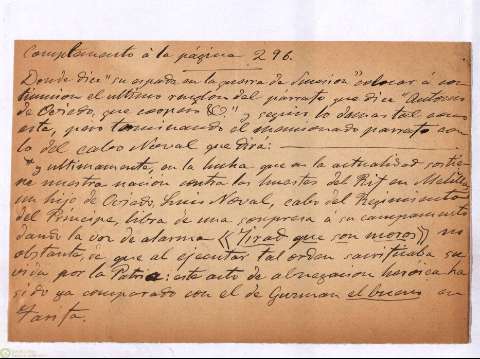 Complemento á la página 296.
Donde dice "su espada en la guerra de Sucesion" colocar á con
tinuacion el ultimo renglon del párrafo que dice "Antonio
de Oviedo, que cooperó &" y seguir lo demas tal como
esta, pero terminando el mencionado parrafo con
lo del cabo Noval que dirá:
"y ultimamente, en la lucha que en la actualidad sostie-
ne nuestra nacion contra las huestes del Rif en Melilla,
un hijo de Oviedo, Luis Noval, cabo del Regimiento
del Principe, libra de una sorpresa á su campamento
dando la voz de alarma «Tirad que son moros» no
obstante, de que al ejecutar tal orden sacrificaba su
vida por la Patria: este acto de abnegacion heroica ha
sido ya comparado con el de Guzman el bueno en
Tarifa.